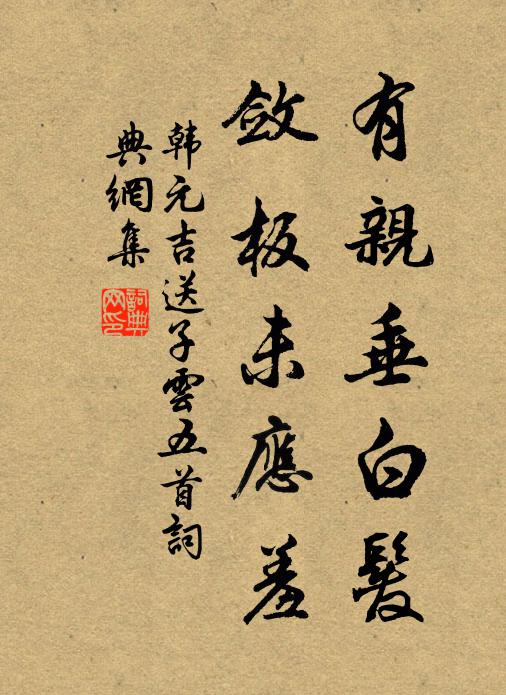 有親垂白髮
斂板未應羞
韩元吉送子雲五首詞
典網集
詞典
网印